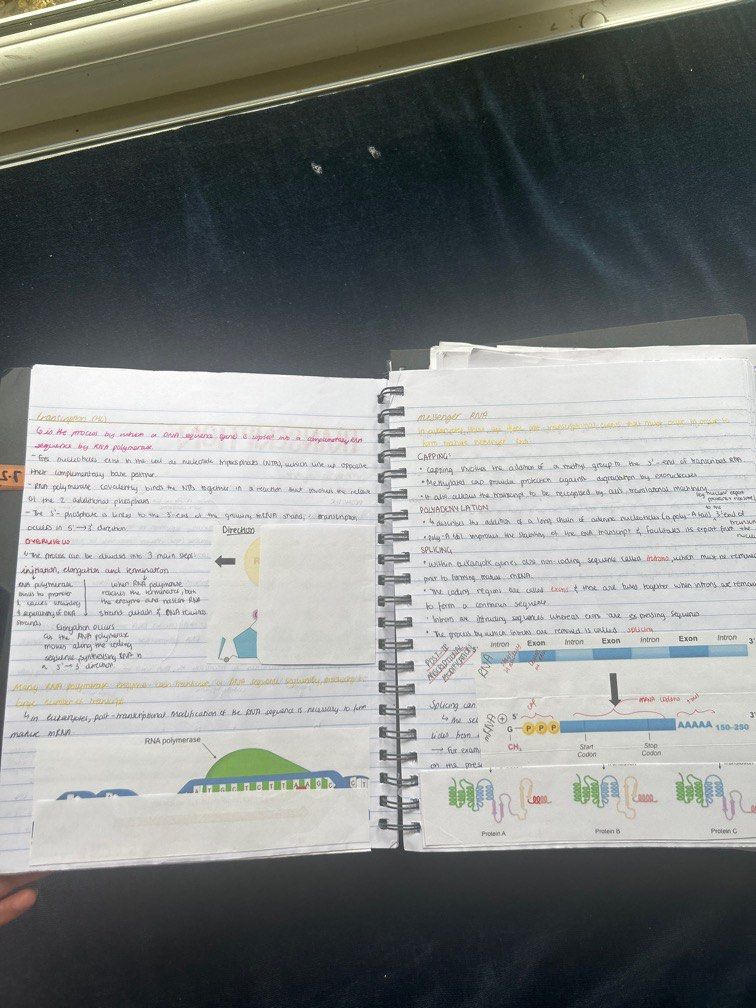 Transcription (HL)
↳ is the process by which a DNA sequence (gene) is copied into a complimentary RNA
sequence by RNA polymerase.
- Free nucleotides exist in the cell as nucleoside triphosphates (NTPs), which line up opposite
their complimentary base partner
- RNA polymerase covalently binds the NTPs together in a reaction that involves the release
of the 2 additional phosphates
- The 5'-phosphate is linked to the 3'-end of the growing mRNA strand, ∴ transcription
occurs in 5' → 3' direction
OVERVIEW
↳ The process can be divided into 3 main steps:
initiation, elongation and termination
RNA polymerase
binds to promoter
& causes unwinding
& separating of DNA
strands
when RNA polymerase
reaches the terminator, both
the enzyme and nascent RNA
strand detach & DNA rewinds
Elongation occurs
as the RNA polymerase
moves along the coding
sequence synthesising RNA in
a 5' → 3' direction
Direction
R
Many RNA polymerase enzymes can transcribe a DNA sequence sequentially, producing a
large number of transcripts
↳ in eukaryotes, post-transcriptional modification of the RNA sequence is necessary to form
mature mRNA
RNA polymerase
messenger RNA
In eukaryotes there are three post transcriptional events that must occur in order to
form mature messenger RNA
CAPPING:
• Capping involves the addition of a methyl group to the 5'-end of transcribed RNA
• Methylated cap provides protection against degradation by exonucleases
• It also allows the transcript to be recognised by cell's translational machinery
POLYADENYLATION
↳ describes the addition of a long chain of adenine nucleotides (a poly-A tail) to the 3' end of
• Poly-A tail improves the stability of the RNA transcript & facilitates its export from the
SPLICING
• Within eukaryotic genes are non-coding sequences called introns, which must be removed
prior to forming mature mRNA.
• The coding regions are called exons & these are fused together when introns are removed
to form a continuous sequence
• Introns are intruding sequences whereas exons are expressing sequences
• The process by which introns are removed is called splicing
POST-TRANSCRIPTIONAL MODIFICATIONS
RNA
Intron Exon Intron Exon Intron Exon 3'
Splicing can
↳ the sel
→ For exam
on the pres
mRNA
cap
mRNA codons
tail
5'
G P P P
CH₃
Start
Codon
Stop
Codon
AAAAA 150-250
3'
Protein A
Protein B
Protein C